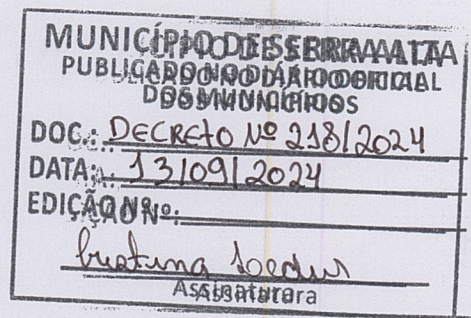 MUNICÍPIO DE SERRA ALTA
PUBLICADO NO DIÁRIO OFICIAL
DOS MUNICÍPIOS
DOC.: DECRETO Nº 218/2024
DATA: 13/09/2024
EDIÇÃO Nº:
Assinatura